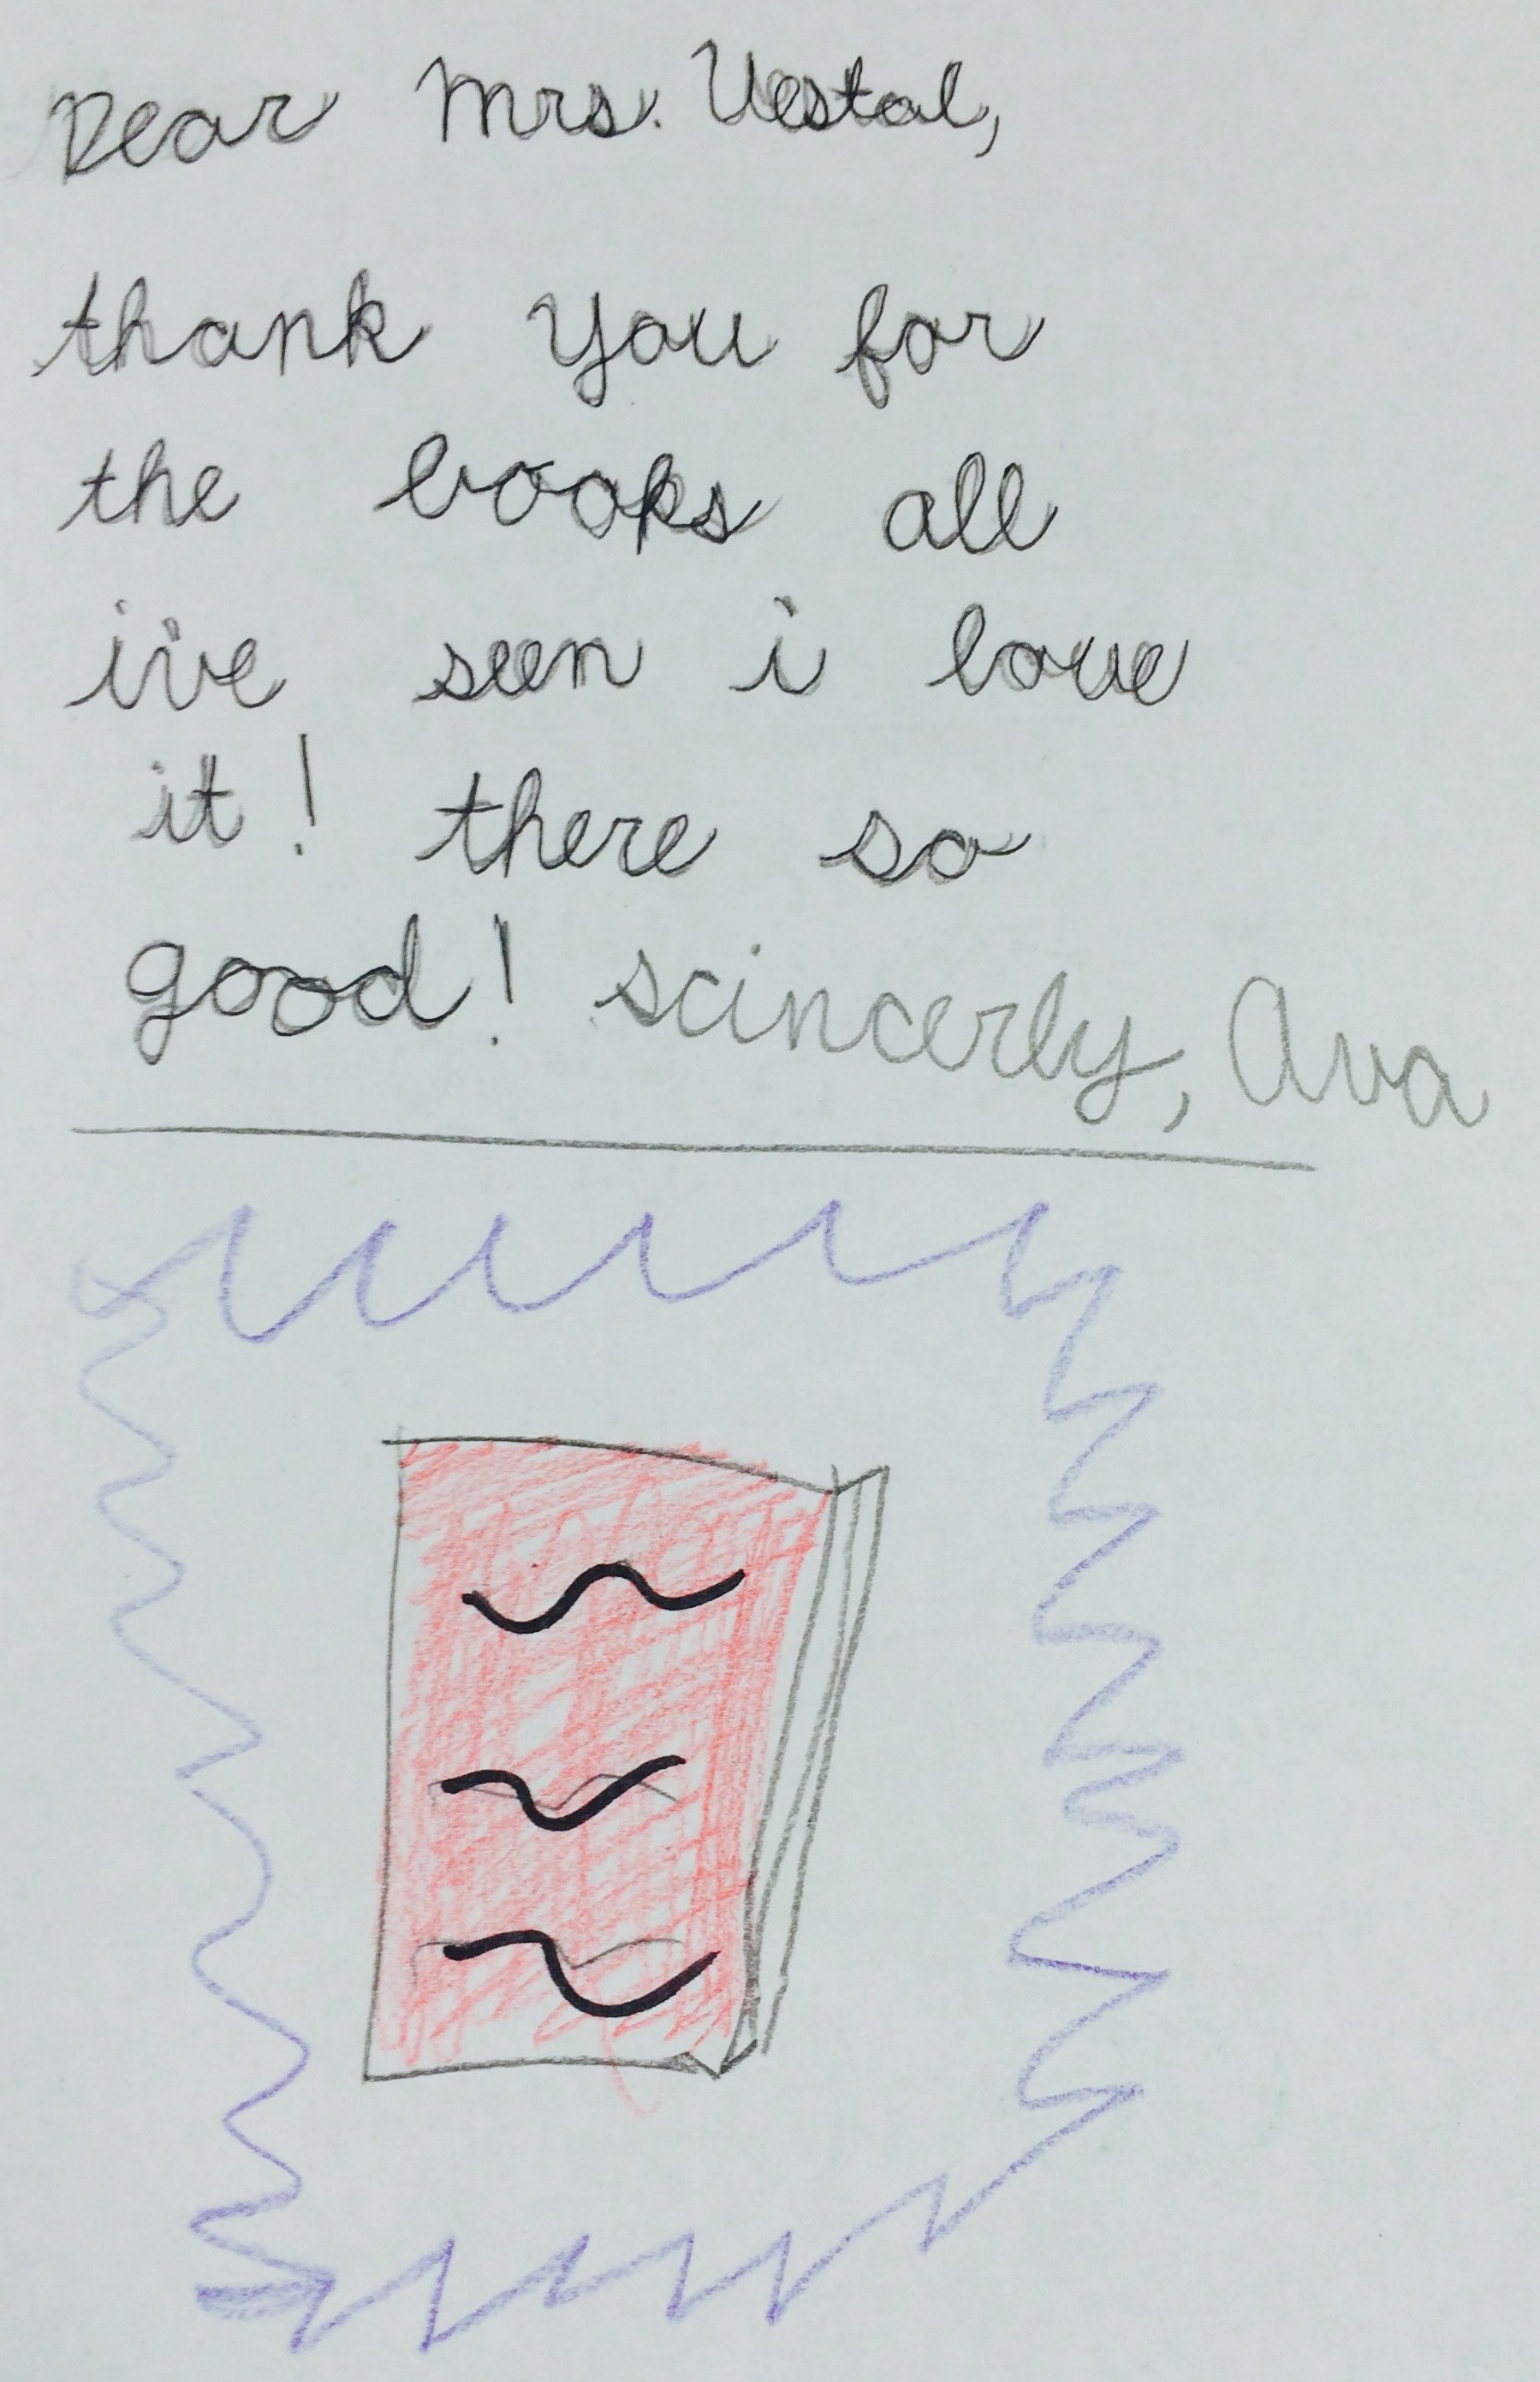 Dear Mrs. Vestal,
thank you for
the books all
ive seen i love
it! there so
good! scincerly, Ava